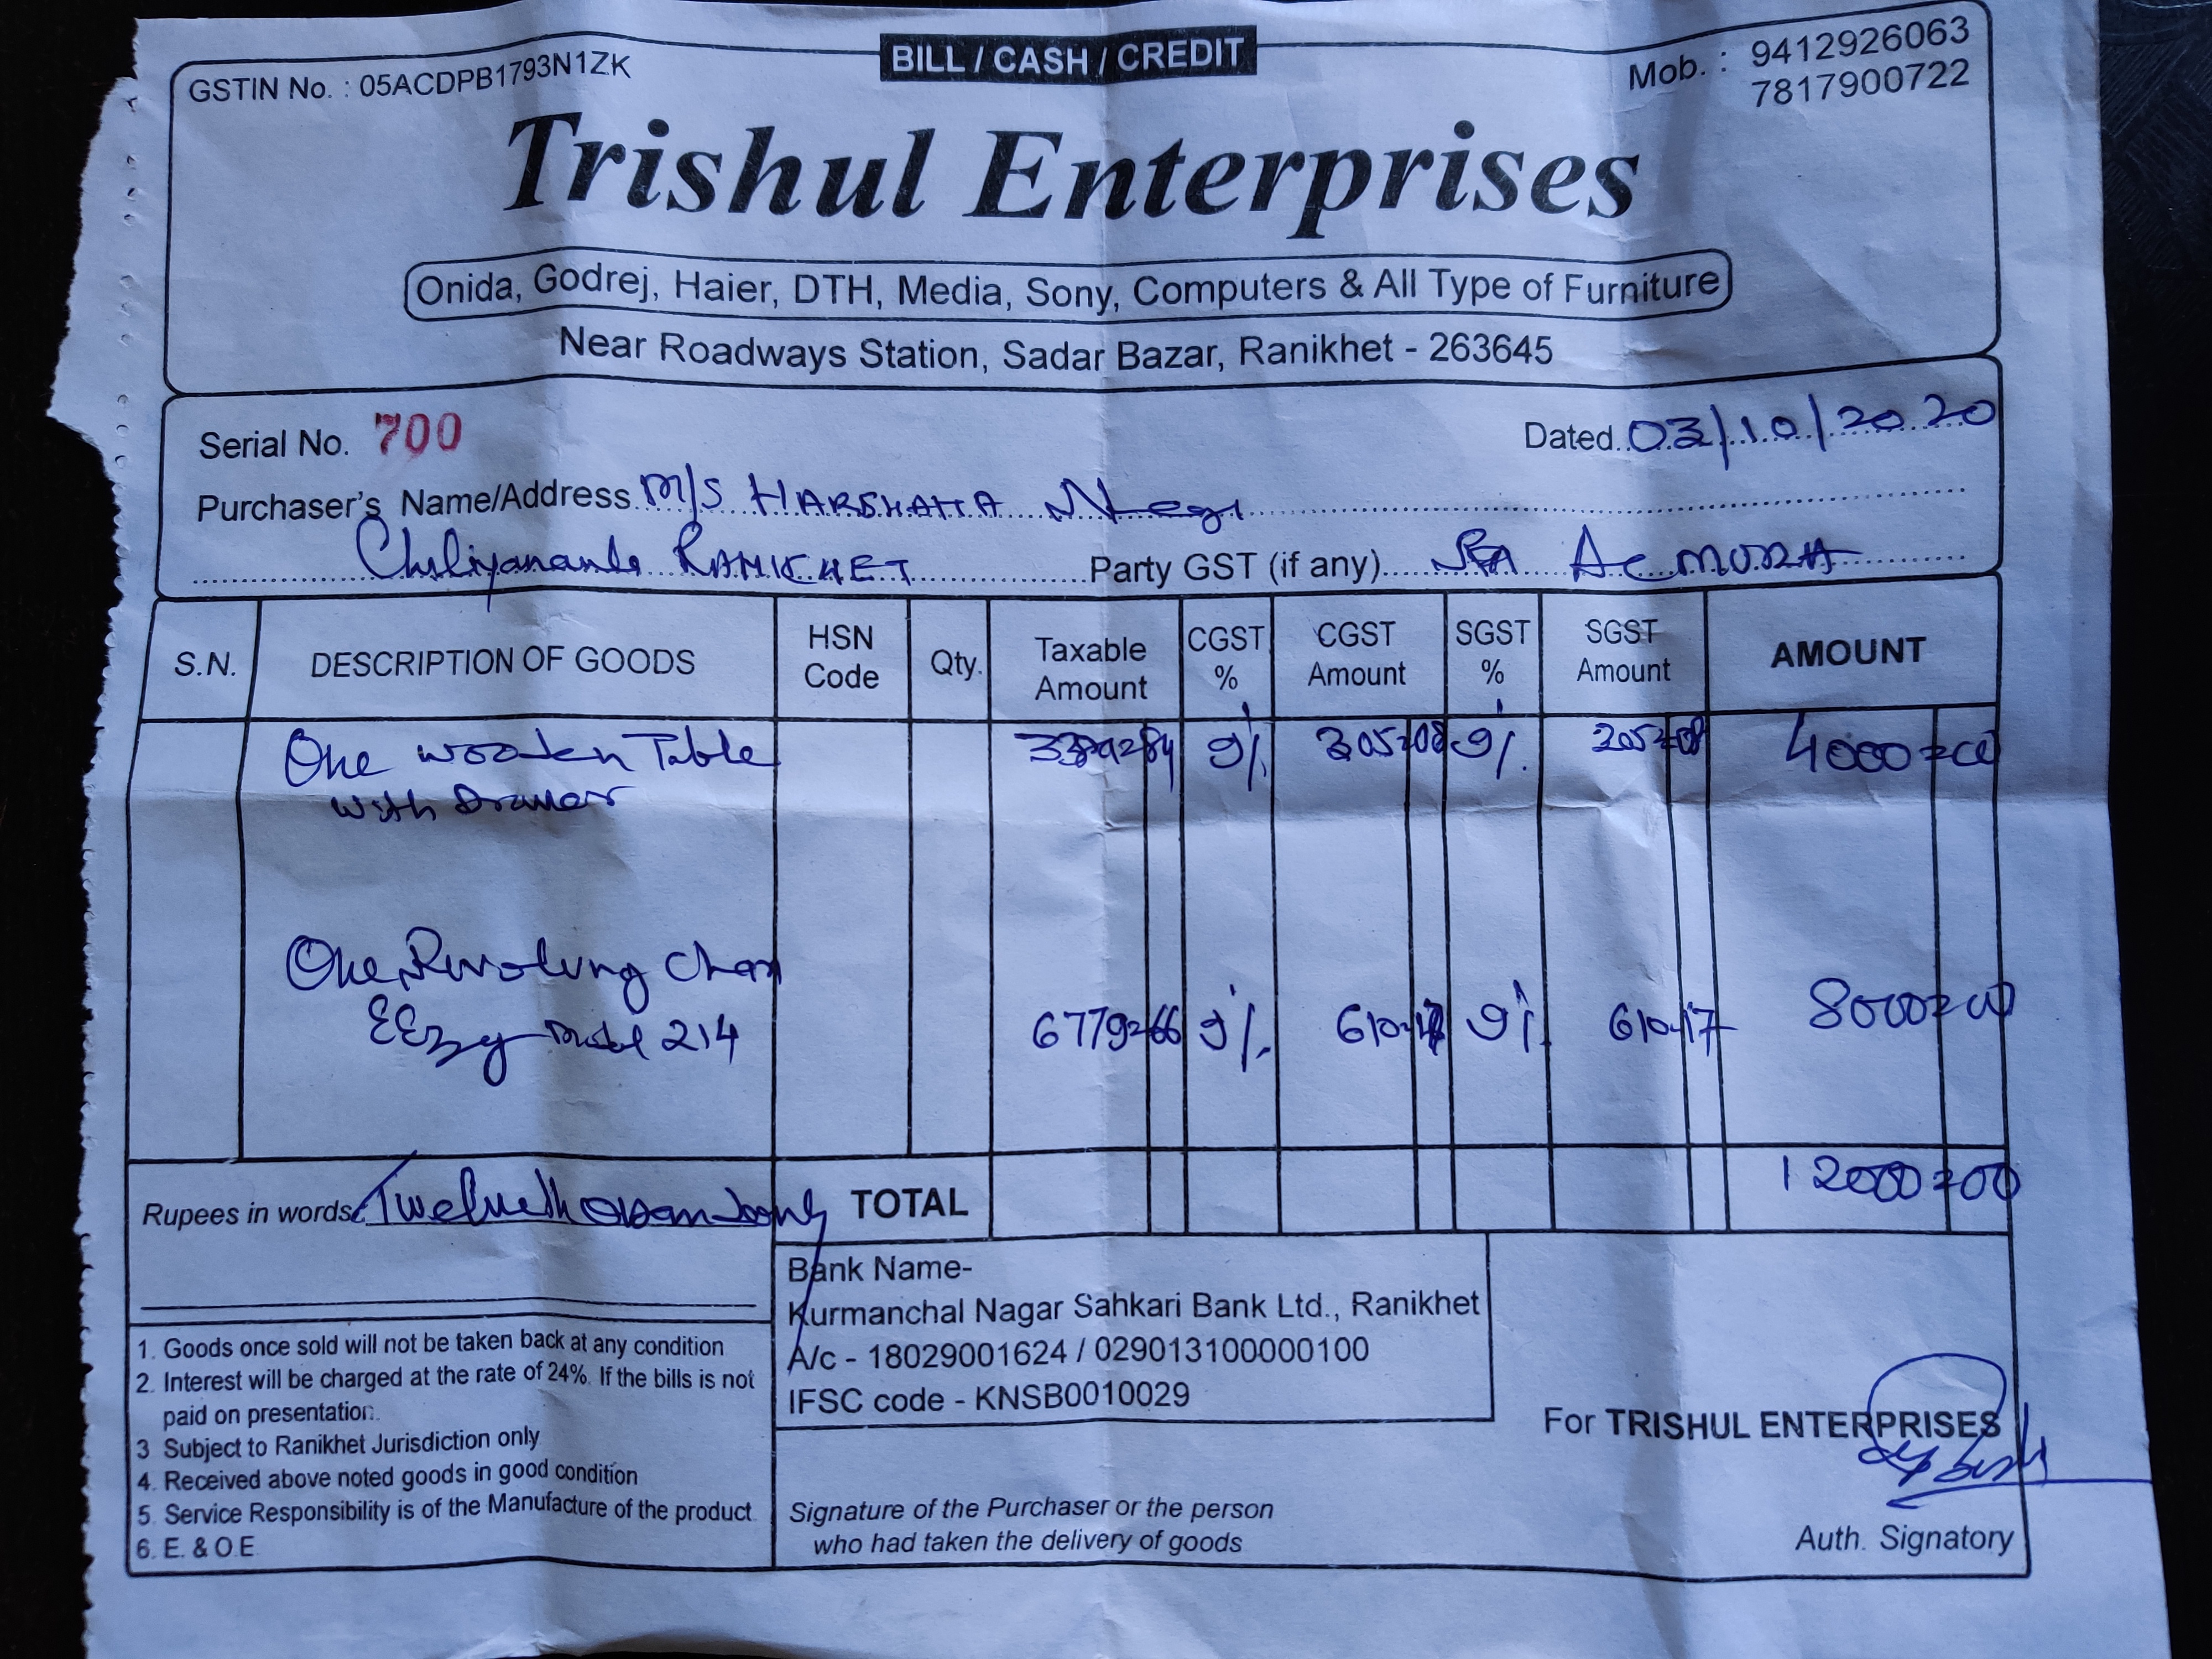 GSTIN No. : 05ACDPB1793N1ZK
BILL / CASH / CREDIT
Mob. : 9412926063
7817900722
Trishul Enterprises
Onida, Godrej, Haier, DTH, Media, Sony, Computers & All Type of Furniture
Near Roadways Station, Sadar Bazar, Ranikhet - 263645
Serial No. 700
Dated 03/10/2020
Purchaser's Name/Address M/S HARSHATA Negi
RANIKHET Party GST (if any)
S.N. DESCRIPTION OF GOODS HSN Code Qty. Taxable Amount CGST % CGST Amount SGST % SGST Amount AMOUNT
One wooden Table 9% 9% 4000=00
with Drawer
One Revolving Chair 6779=66 9% 9% 610=17 8000=00
214
Rupees in words TOTAL 12000=00
Bank Name-
Kurmanchal Nagar Sahkari Bank Ltd., Ranikhet
A/c - 18029001624 / 029013100000100
IFSC code - KNSB0010029
1. Goods once sold will not be taken back at any condition
2. Interest will be charged at the rate of 24%. If the bills is not
paid on presentation.
3 Subject to Ranikhet Jurisdiction only
4. Received above noted goods in good condition
5. Service Responsibility is of the Manufacture of the product.
6. E. & O.E
Signature of the Purchaser or the person
who had taken the delivery of goods
For TRISHUL ENTERPRISES
Auth. Signatory